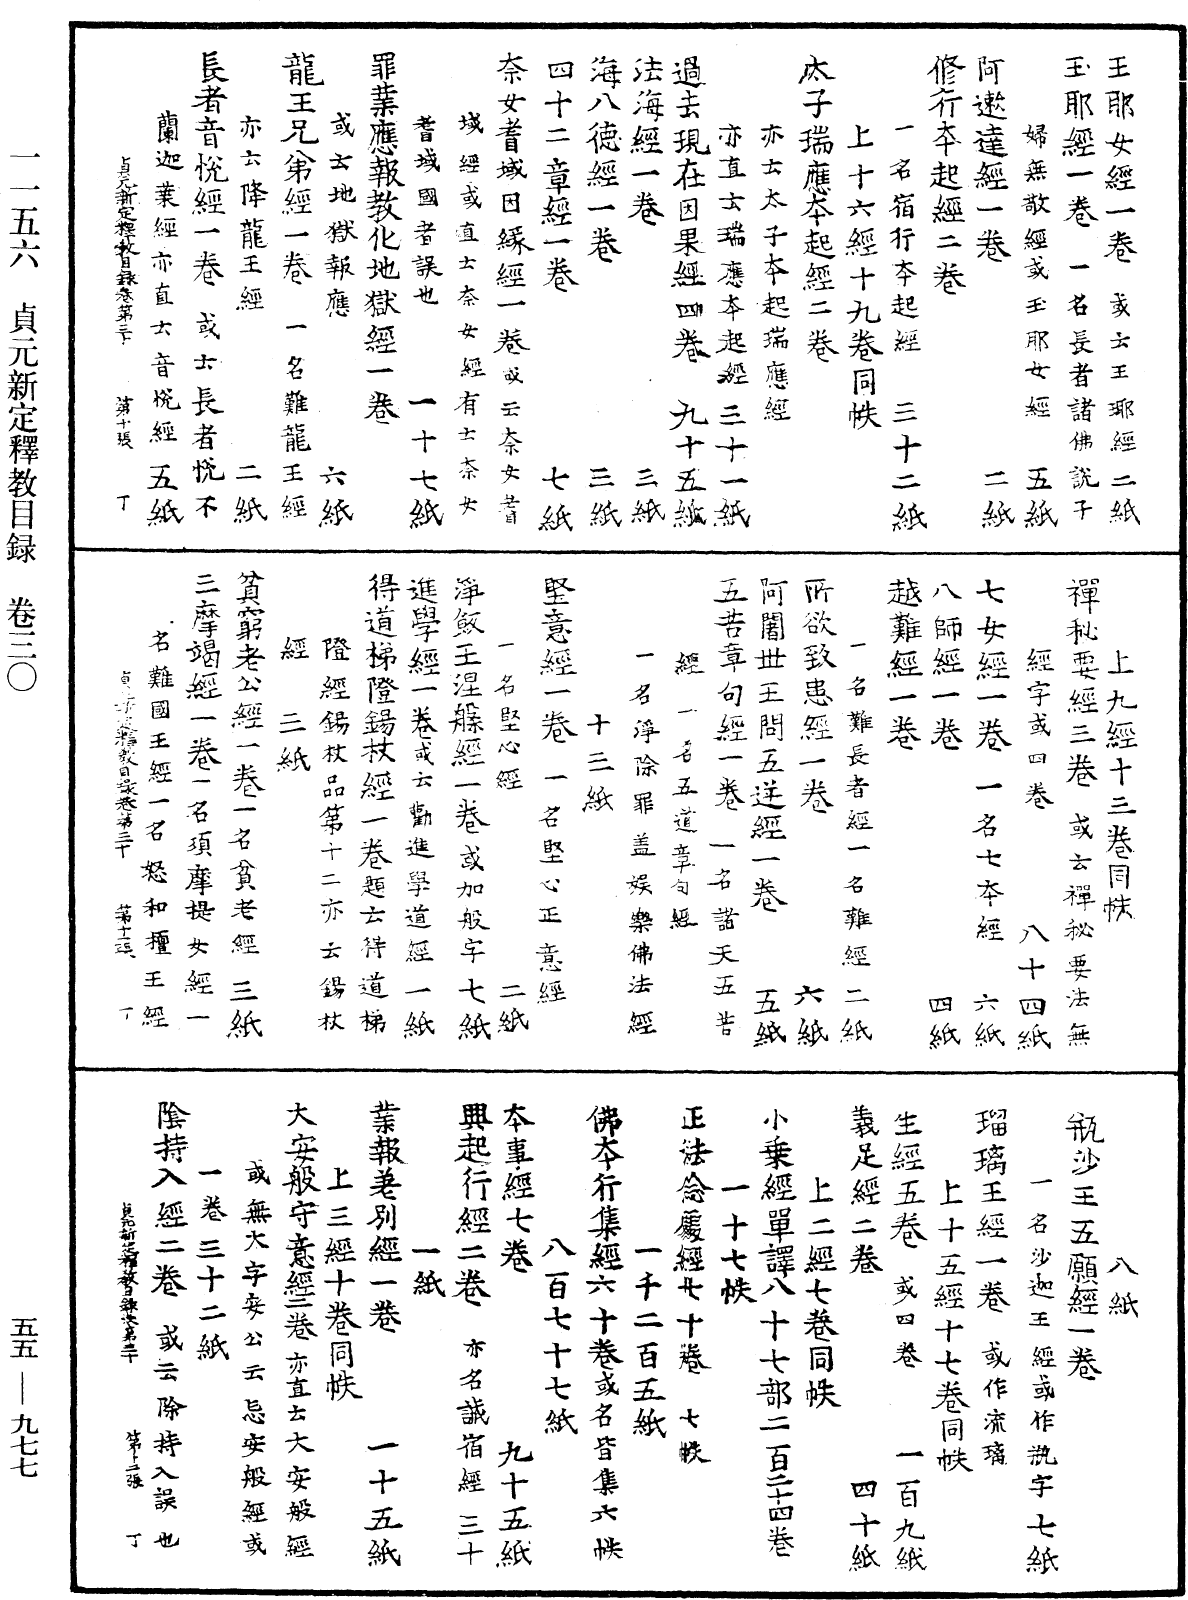 玉耶女經一卷　或云王耶經二紙
玉耶經一卷　一名長者諸佛說子
婦無敬經或玉耶女經　五紙
阿遬達經一卷　二紙
修行本起經二卷
一名宿行本起經　三十二紙
上十六經十九卷同帙
太子瑞應本起經二卷
亦云太子本起瑞應經
亦直云瑞應本起經三十一紙
過去現在因果經四卷　九十五紙
法海經一卷　三紙
海八德經一卷　三紙
四十二章經一卷　七紙
奈女耆域因緣經一卷或云奈女耆
域經或直云奈女經有云奈女
耆域國者誤也　一十七紙
罪業應報教化地獄經一卷
或云地獄報應　六紙
龍王兄弟經一卷　一名難龍王經
亦云降龍王經　二紙
長者音悅經一卷　或云長者悅不
蘭迦葉經亦直云音悅經　五紙
貞元新定釋教目錄卷第三十　第十張　丁
上九經十三卷同帙
禪秘要經三卷　或云禪秘要法無
經字或四卷　八十四紙
七女經一卷　一名七本經　六紙
八師經一卷　四紙
越難經一卷
一名難長者經一名難經　二紙
所欲致患經一卷　六紙
阿闍世王問五逆經一卷　五紙
五苦章句經一卷　一名諸天五苦
經　一名五道章句經
一名淨除罪蓋娛樂佛法經
十三紙
堅意經一卷　一名堅心正意經
一名堅心經　二紙
淨飯王涅槃經一卷或加般字七紙
進學經一卷或云勸進學道經　一紙
得道梯隥錫杖經一卷題云得道梯
隥經錫杖品第十二亦云錫杖
經　三紙
貧窮老公經一卷一名貧老經　三紙
三摩竭經一卷一名須摩提女經一
名難國王經一名怒和檀王經
貞元新定釋教目錄卷第三十　第十一張　丁
八紙
瓶沙王五願經一卷
一名沙迦王經或作瓶字七紙
瑠璃王經一卷　或作流璃
上十五經十七卷同帙
生經五卷　或四卷　一百九紙
義足經二卷　四十紙
上二經七卷同帙
小乘經單譯八十七部二百二十四卷
一十七帙
正法念處經七十卷　七帙
一千二百五紙
佛本行集經六十卷或名皆集六帙
八百七十七紙
本事經七卷　九十五紙
興起行經二卷　亦名誡宿經　三十
一紙
業報差別經一卷　一十五紙
上三經十卷同帙
大安般守意經二卷亦直云大安般經
或無大字安公云忌安般經或
一卷三十二紙
陰持入經二卷　或云除持入誤也
貞元新定釋教目錄卷第三十　第十二張　丁
一一五六　貞元新定釋教目録　卷三〇
五五—九七七